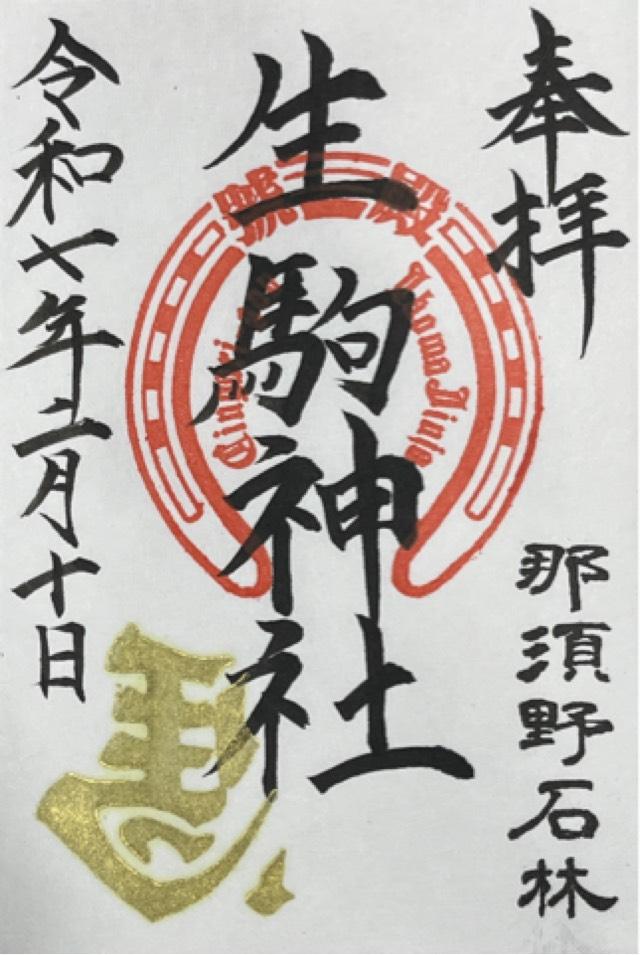 奉拝
那須野石林
生駒神社
殿三號
Ikoma Jinja
令和七年二月十日
馬